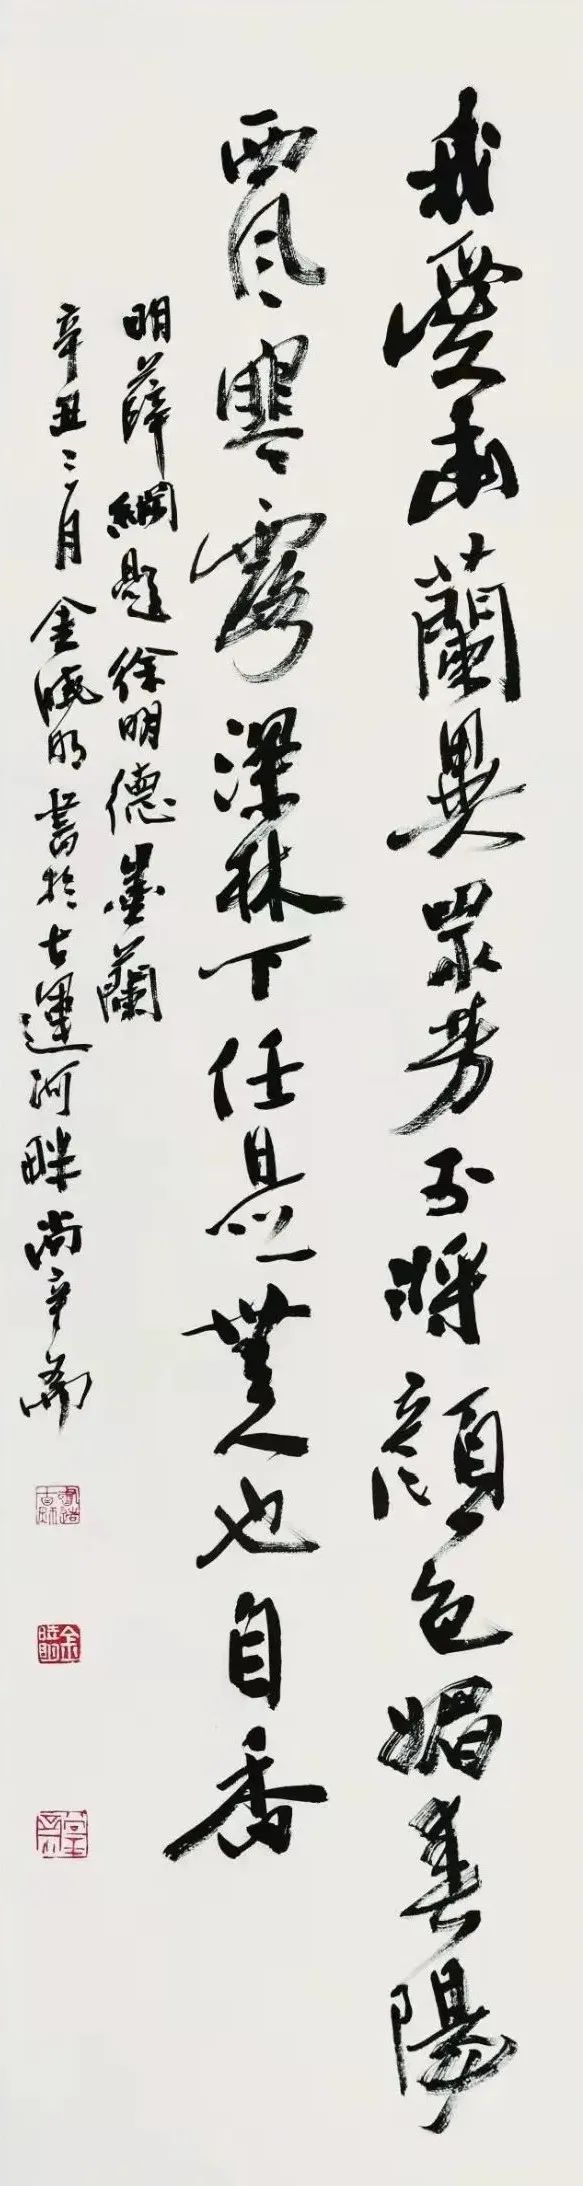 我愛幽蘭異眾芳不將顏色媚春陽
西風寒露深林下任是無人也自香
明薛綱題徐明德墨蘭
辛丑三月金曉明書於古運河畔尚辛齋
金曉明